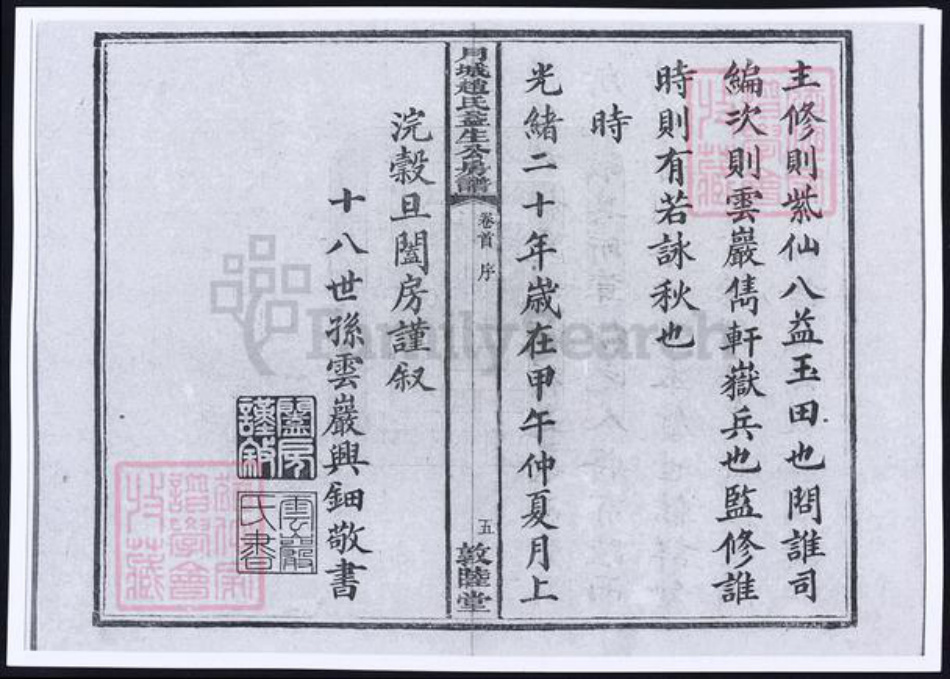 主修則紫仙八益玉田也問誰司
編次則雲巖雋軒嶽兵也監修誰
時則有若詠秋也
時
光緒二十年歲在甲午仲夏月上
月城趙氏益生公房譜
卷首 序
五
敦睦堂
浣穀旦闔房謹叙
十八世孫雲巖興鈿敬書
闔房謹叙
雲巖氏書
FamilySearch